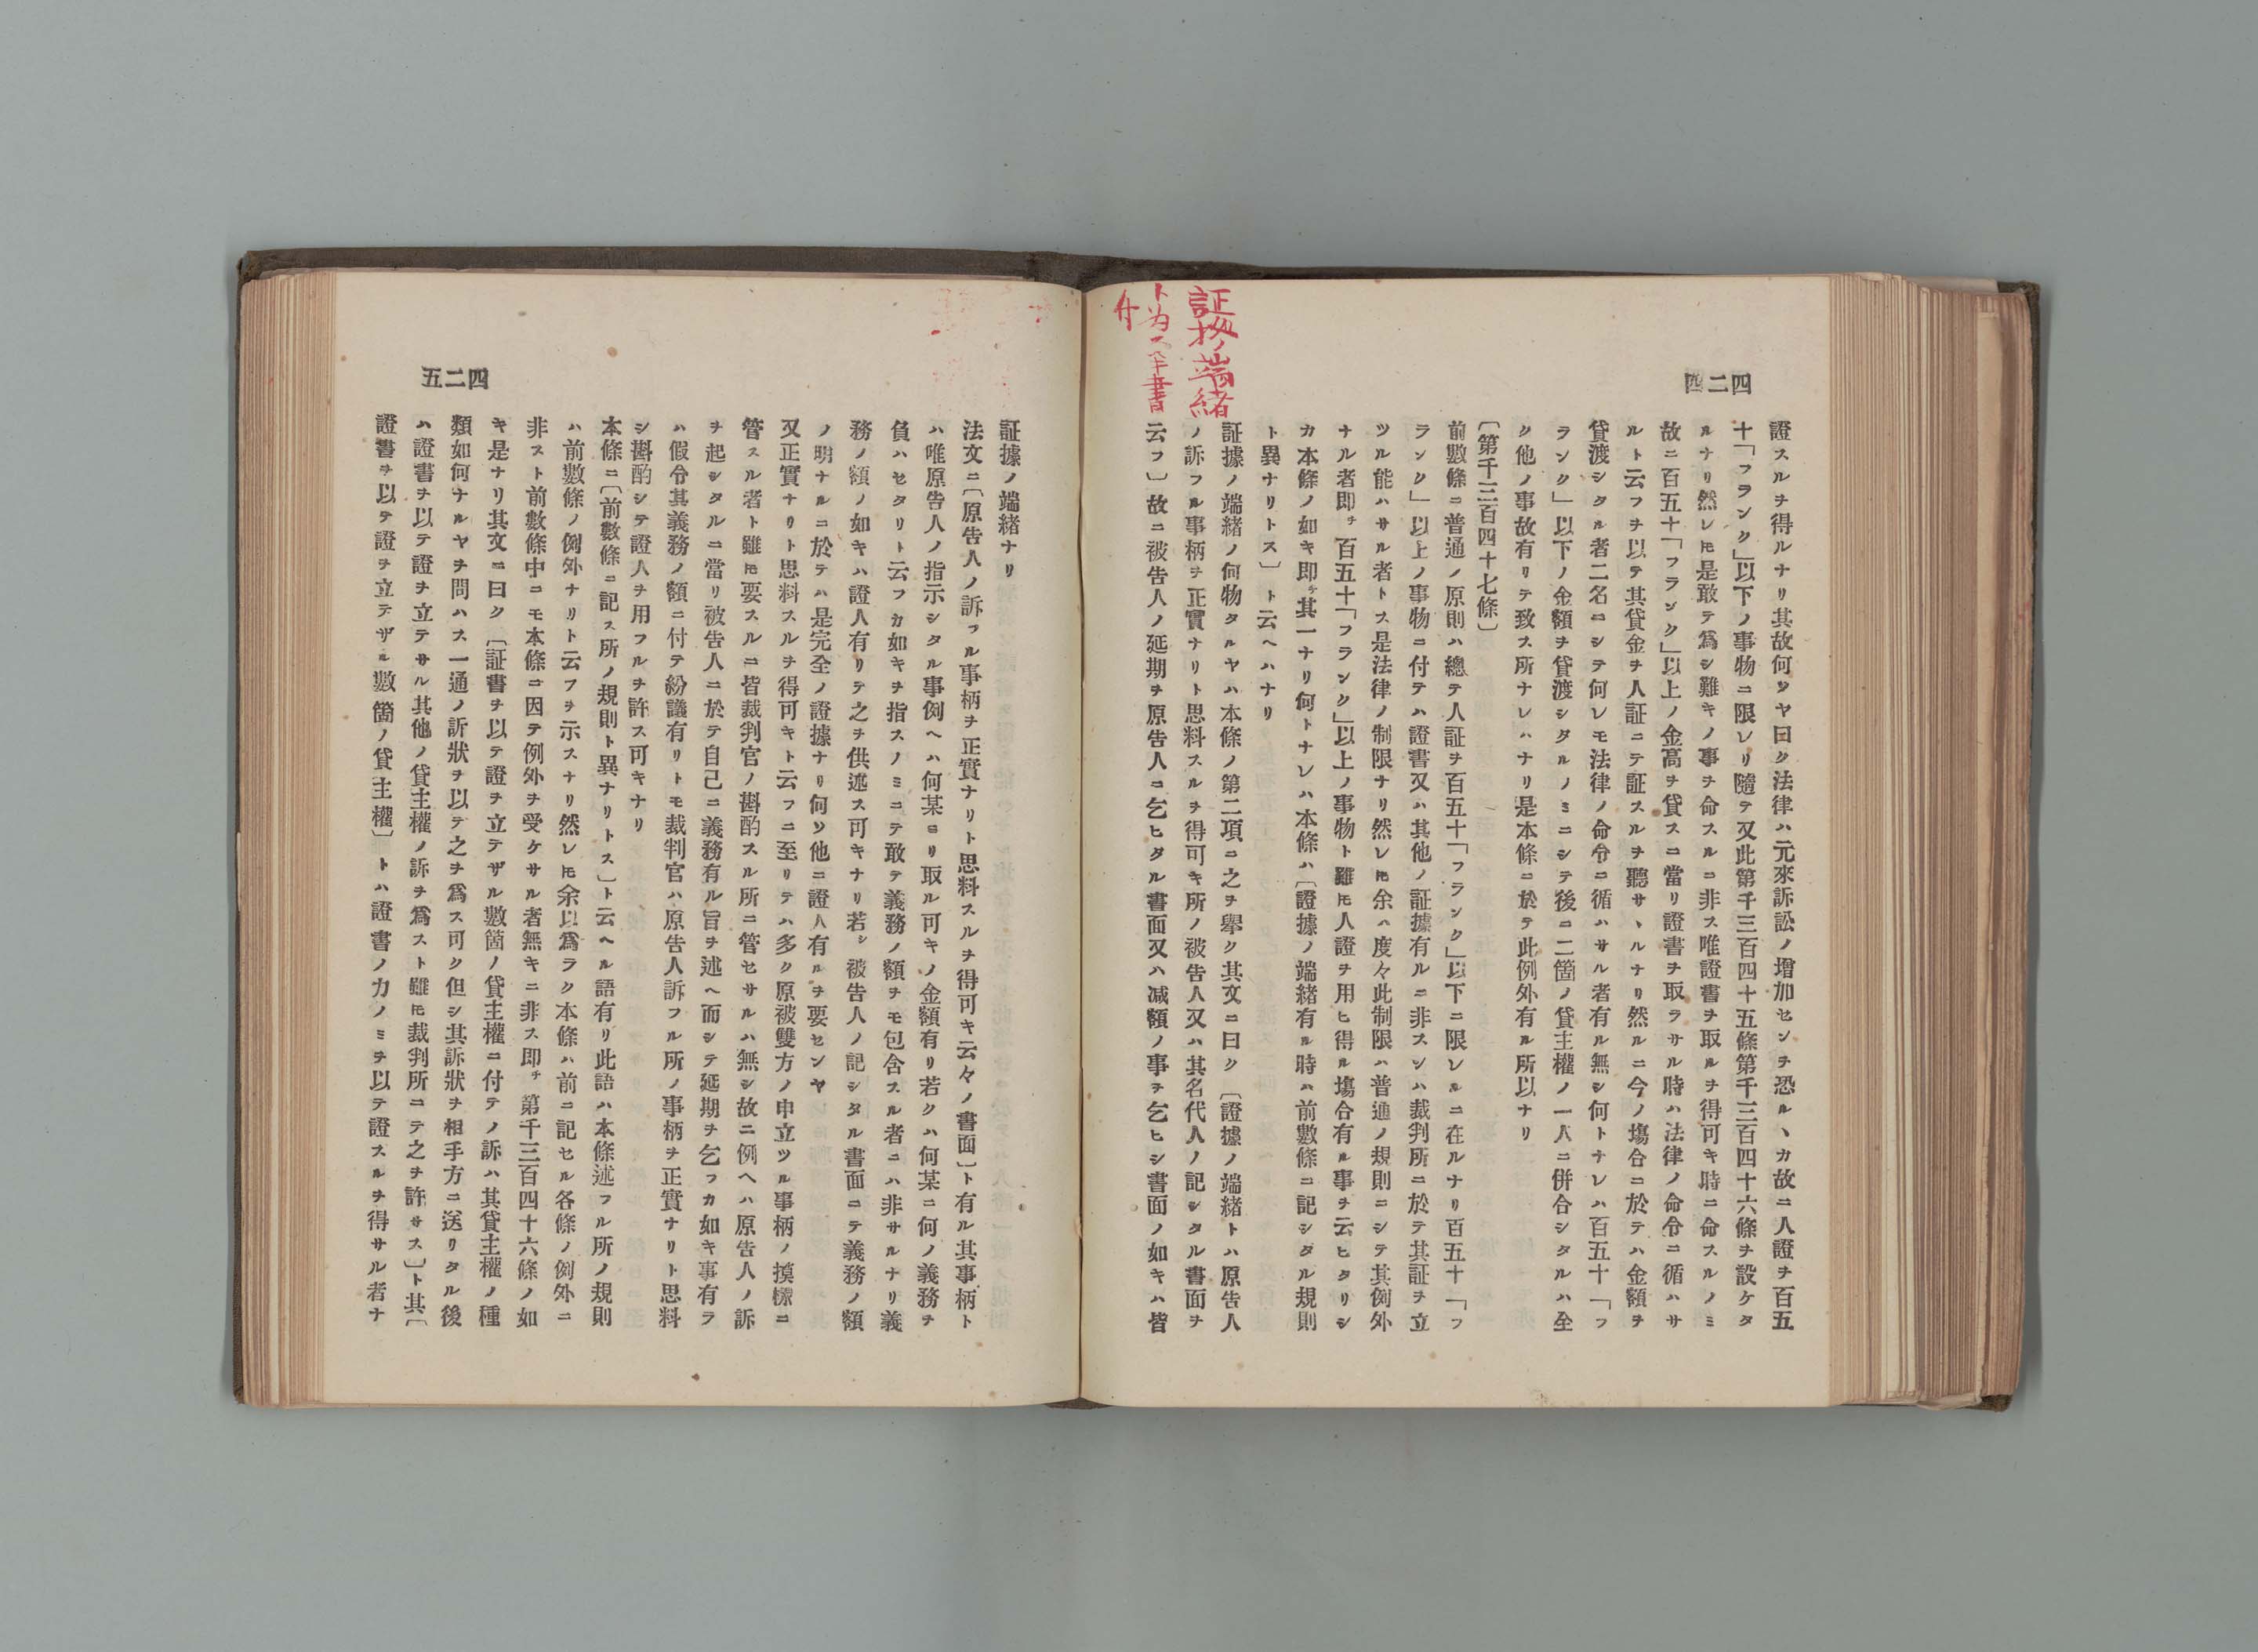 四二四
證スルヿヲ得ルナリ其故何ソヤ曰ク法律ハ元來訴訟ノ增加センヿヲ恐ルヽカ故ニ人證ヲ百五
十「フランク」以下ノ事物ニ限レリ隨テ又此第千三百四十五條第千三百四十六條ヲ設ケタ
ルナリ然レ𪜈是敢テ爲シ難キノ事ヲ命スルニ非ス唯證書ヲ取ルヲ得可キ時ニ命スルノミ
故ニ百五十「フランク」以上ノ金高ヲ貸スニ當リ證書ヲ取ラサル時ハ法律ノ命令ニ循ハサ
ルト云フヲ以テ其貸金ヲ人証ニテ証スルヲ聽サヽルナリ然ルニ今ノ塲合ニ於テハ金額ヲ
貸渡シタル者二名ニシテ何レモ法律ノ命令ニ循ハサル者有ル無シ何トナレハ百五十「フ
ランク」以下ノ金額ヲ貸渡シタルノミニシテ後ニ二箇ノ貸主權ノ一人ニ併合シタルハ全
ク他ノ事故有リテ致ス所ナレハナリ是本條ニ於テ此例外有ル所以ナリ
〔第千三百四十七條〕
前數條ニ普通ノ原則ハ總テ人証ヲ百五十「フランク」以下ニ限レルニ在ルナリ百五十「フ
ランク」以上ノ事物ニ付テハ證書又ハ其他ノ証據有ルニ非スンハ裁判所ニ於テ其証ヲ立
ツル能ハサル者トス是法律ノ制限ナリ然レ𪜈余ハ度々此制限ハ普通ノ規則ニシテ其例外
ナル者即チ百五十「フランク」以上ノ事物ト雖𪜈人證ヲ用ヒ得ル塲合有ル事ヲ云ヒタリシ
カ本條ノ如キ即チ其一ナリ何トナレハ本條ハ〔證據ノ端緒有ル時ハ前數條ニ記シタル規則
ト異ナリトス〕ト云ヘハナリ
証據ノ端緒ノ何物タルヤハ本條ノ第二項ニ之ヲ擧ク其文ニ曰ク〔證據ノ端緒トハ原告人
ノ訴フル事柄ヲ正實ナリト思料スルヲ得可キ所ノ被告人又ハ其名代人ノ記シタル書面ヲ
云フ〕故ニ被告人ノ延期ヲ原告人ニ乞ヒタル書面又ハ減額ノ事ヲ乞ヒシ書面ノ如キハ皆
証拠ノ端緒
ト為ス
書
付
四二五
証據ノ端緒ナリ
法文ニ〔原告人ノ訴フル事柄ヲ正實ナリト思料スルヲ得可キ云々ノ書面〕ト有ル其事柄ト
ハ唯原告人ノ指示シタル事例ヘハ何某ヨリ取ル可キノ金額有リ若クハ何某ニ何ノ義務ヲ
負ハセタリト云フカ如キヲ指スノミニテ敢テ義務ノ額ヲモ包含スル者ニハ非サルナリ義
務ノ額ノ如キハ證人有リテ之ヲ供述ス可キナリ若シ被告人ノ記シタル書面ニテ義務ノ額
ノ明ナルニ於テハ是完全ノ證據ナリ何ソ他ニ證人有ルヲ要センヤ
又正實ナリト思料スルヲ得可キト云フニ至リテハ多ク原被雙方ノ申立ツル事柄ノ摸樣ニ
管スル者ト雖𪜈要スルニ皆裁判官ノ斟酌スル所ニ管セサルハ無シ故ニ例ヘハ原告人ノ訴
ヲ起シタルニ當リ被告人ニ於テ自己ニ義務有ル旨ヲ述ヘ而シテ延期ヲ乞フカ如キ事有ラ
ハ假令其義務ノ額ニ付テ紛議有リトモ裁判官ハ原告人訴フル所ノ事柄ヲ正實ナリト思料
シ斟酌シテ證人ヲ用フルヲ許ス可キナリ
本條ニ〔前數條ニ記ス所ノ規則ト異ナリトス〕ト云ヘル語有リ此語ハ本條述フル所ノ規則
ハ前數條ノ例外ナリト云フヲ示スナリ然レ𪜈余以爲ラク本條ハ前ニ記セル各條ノ例外ニ
非スト前數條中ニモ本條ニ因テ例外ヲ受ケサル者無キニ非ス即チ第千三百四十六條ノ如
キ是ナリ其文ニ曰ク〔証書ヲ以テ證ヲ立テザル數箇ノ貸主權ニ付テノ訴ハ其貸主權ノ種
類如何ナルヤヲ問ハス一通ノ訴狀ヲ以テ之ヲ爲ス可ク但シ其訴狀ヲ相手方ニ送リタル後
ハ證書ヲ以テ證ヲ立テサル其他ノ貸主權ノ訴ヲ爲スト雖𪜈裁判所ニテ之ヲ許サス〕ト其〔
證書ヲ以テ證ヲ立テザル數箇ノ貸主權〕トハ證書ノ力ノミヲ以テ證スルヲ得サル者ナ